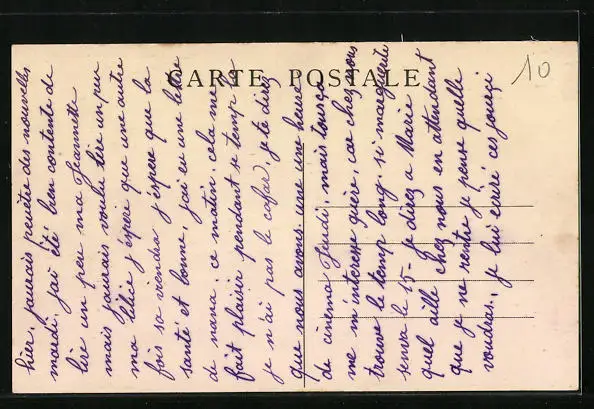 CARTE POSTALE
10
hier, j'aurais peutêtre des nouvelles
mardi. j'ai été bien contente de
lire un peu ma Jeannette
mais j'aurais voulu lire un peu
ma Lélie j'éspère que une autre
fois sa viendra j'éspère que la
santé est bonne, j'ai eu une lettre
de nana, ce matin, cela me
fait plaisir pendant se temp la
je n'ai pas le cafar, je te direz
que nous avons une une heure
de cinéma Jeudi, mais tout ça
me m'interesse guère, car chez nous
trouve le temp long, si marguerite
sensa le 15 - je direz a Marie
quel aille chez nous en attendant
que je ne rentre je pense quelle
voudras, je lui écriré ces jours çi